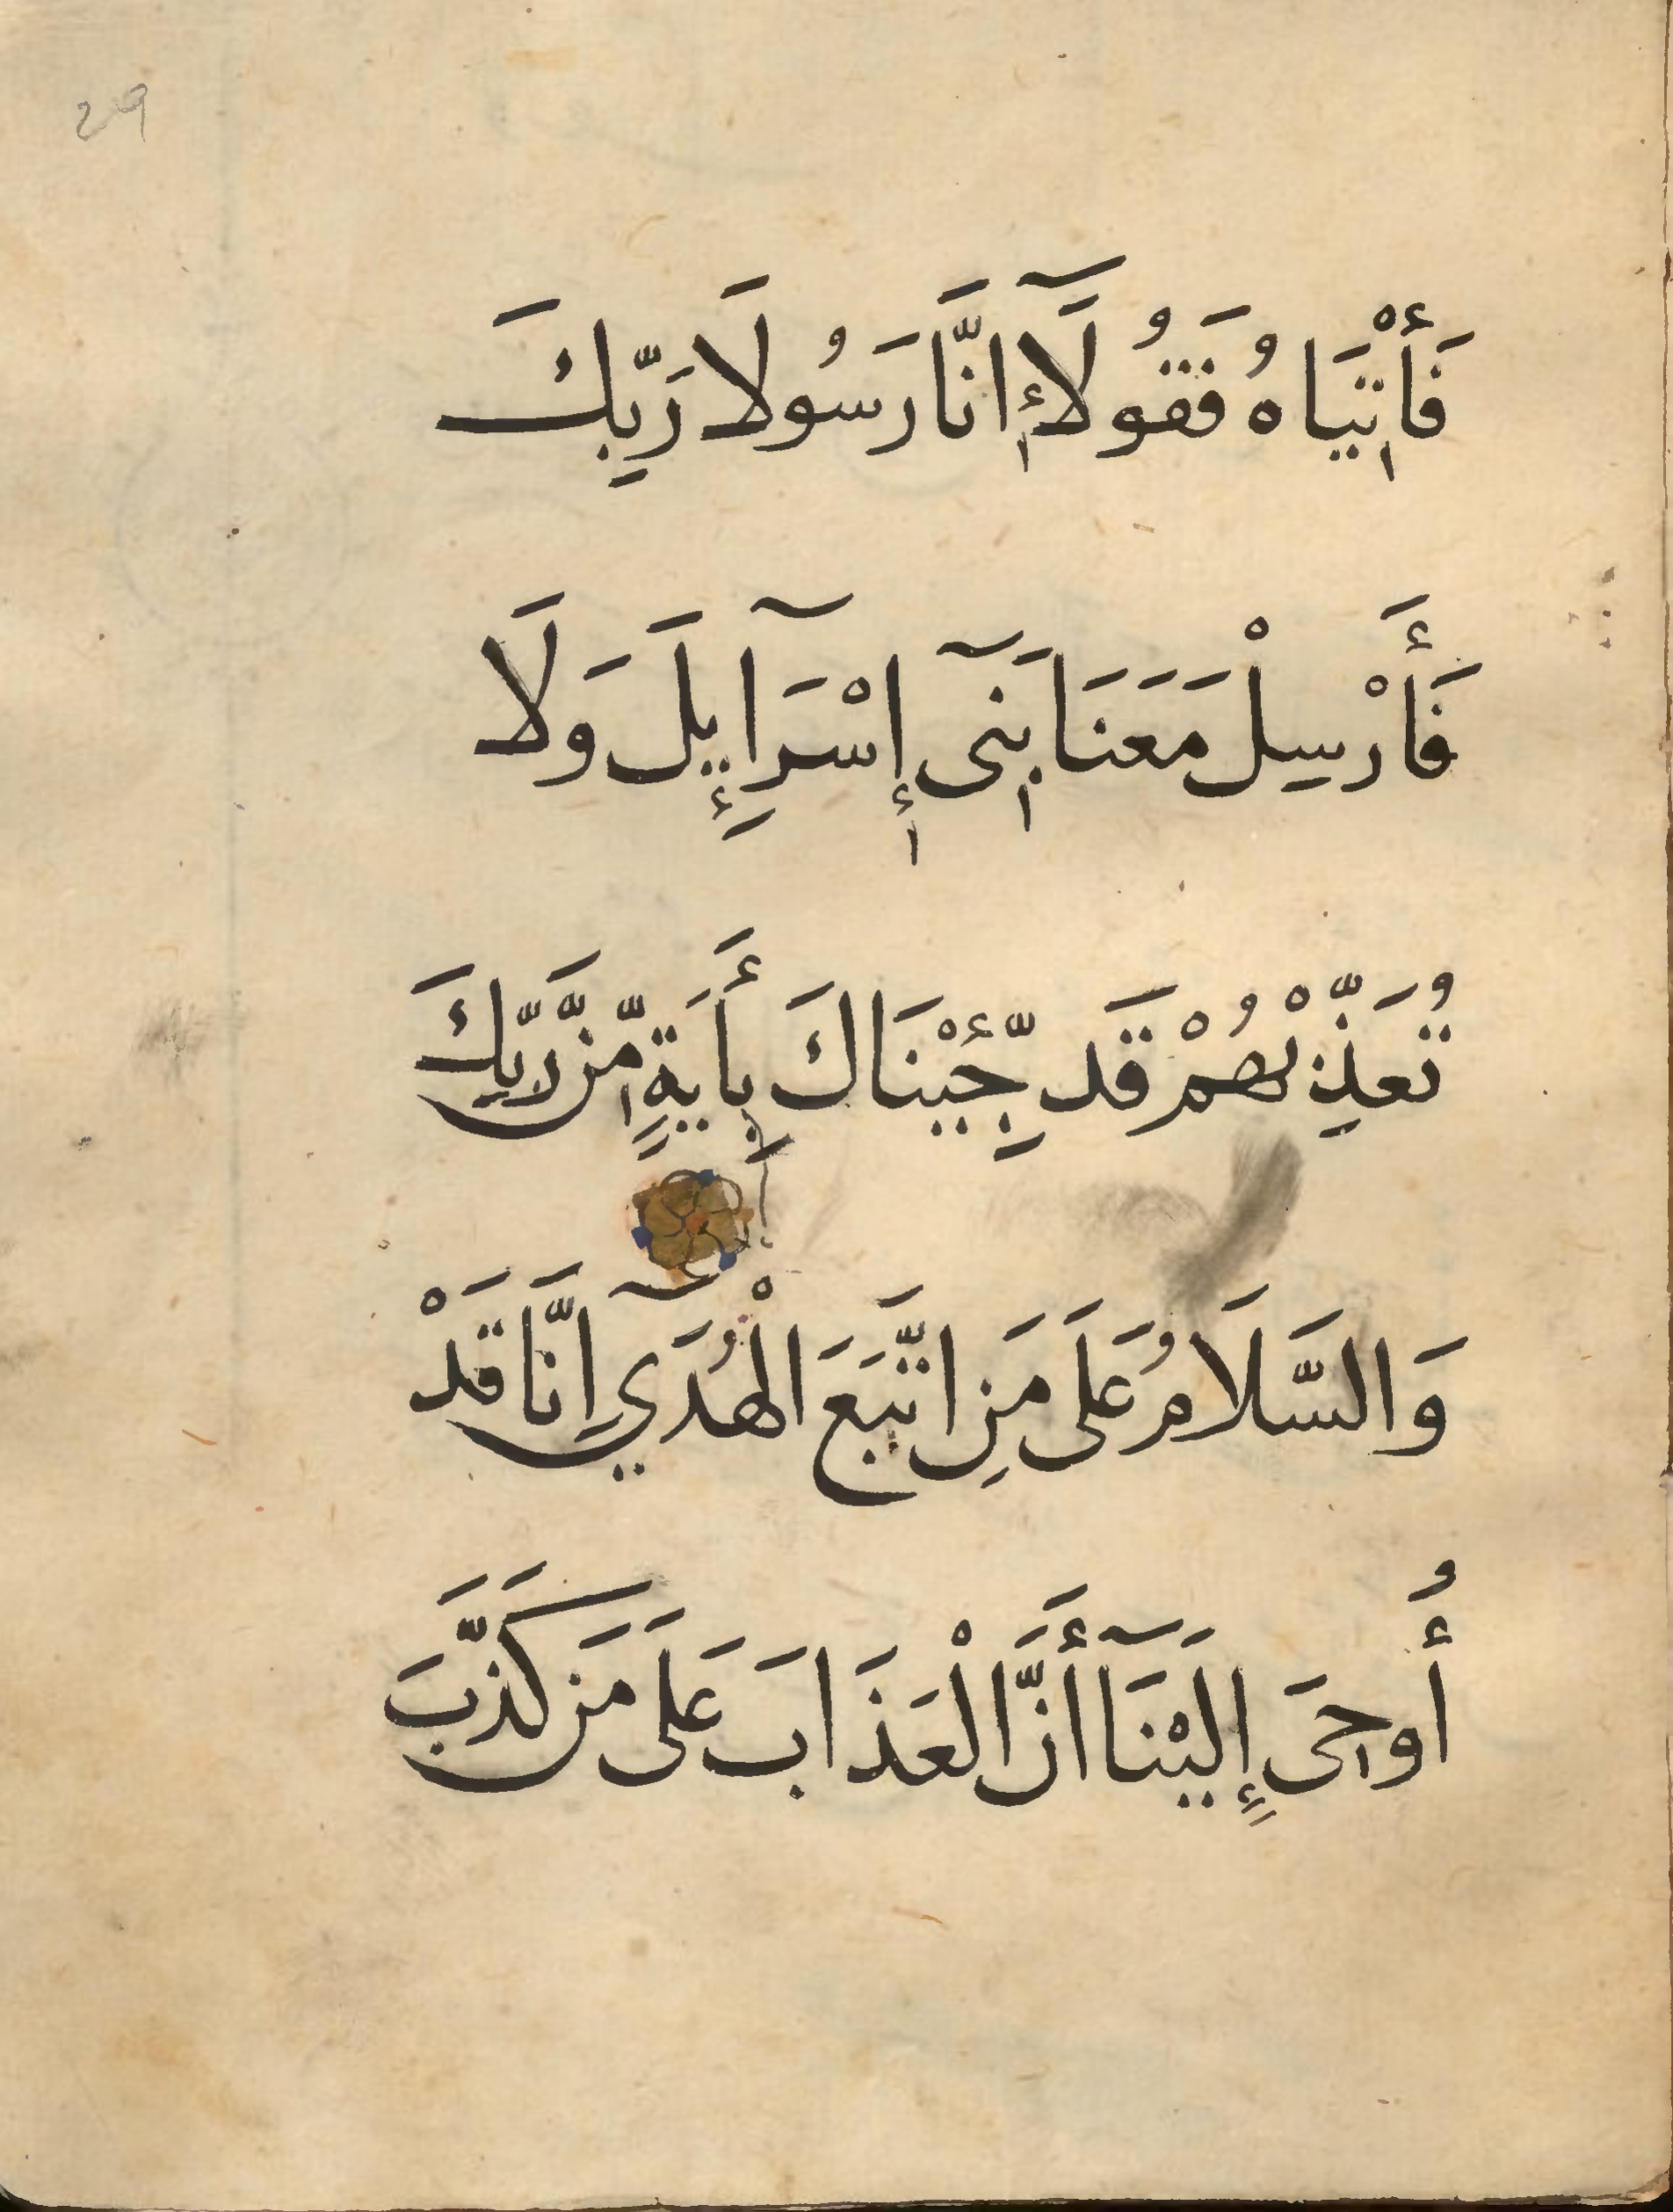 29
فَأْتِيَاهُ فَقُولَآ إِنَّا رَسُولَا رَبِّكَ
فَأَرْسِلْ مَعَنَا بَنِىٓ إِسْرَآءِيلَ وَلَا
تُعَذِّبْهُمْ قَد جِّئْنَاكَ بِأَيَةٍ مِّن رَّبِّكَ
وَالسَّلَامُ عَلَى مَنِ اتَّبَعَ الْهُدَيٓ اِنَّا قَدْ
أُوحِىَ إِلَيْنَآ أَنَّ الْعَذَابَ عَلَى مَن كَذَّبَ